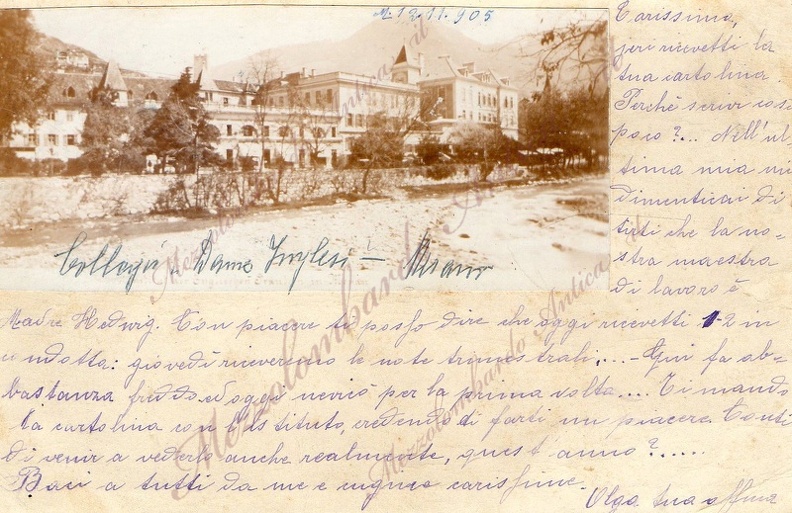 M. 12.11.905
Carissima,
jeri ricevetti la
tua cartolina.
Perchè scrivi così
poco?... Nell'ul-
tima mia mi
dimenticai di
dirti che la no-
stra maestra
di lavoro è
Madre Hedwig. Con piacere ti posso dire che oggi ricevetti 1-2 in
condotta: giovedì riceveremo le note trimestrali,...- Qui fa ab-
bastanza freddo ed oggi nevicò per la prima volta.... Ti mando
la cartolina con l'Istituto, credendo di farti un piacere. Conti
di venir a vederlo anche realmente, quest'anno?......
Baci a tutti da me e carissime
Olga tua affma
Collegio Dame Inglesi - Merano
Mezzolombardo Antica
Mezzolombardo Antica